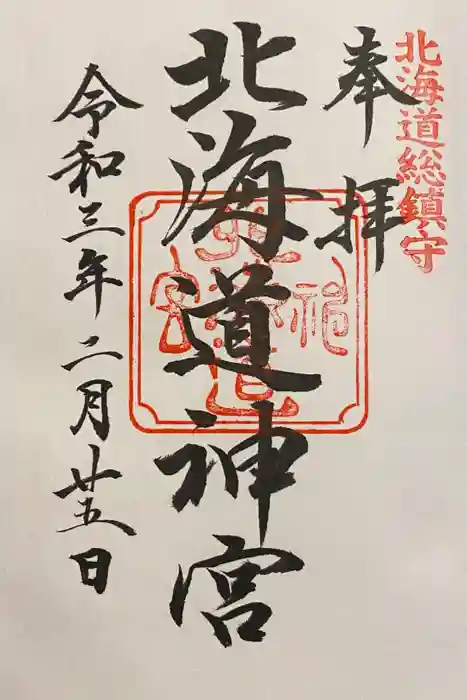 北海道総鎮守
奉拝
北海道神宮
令和三年二月廿五日